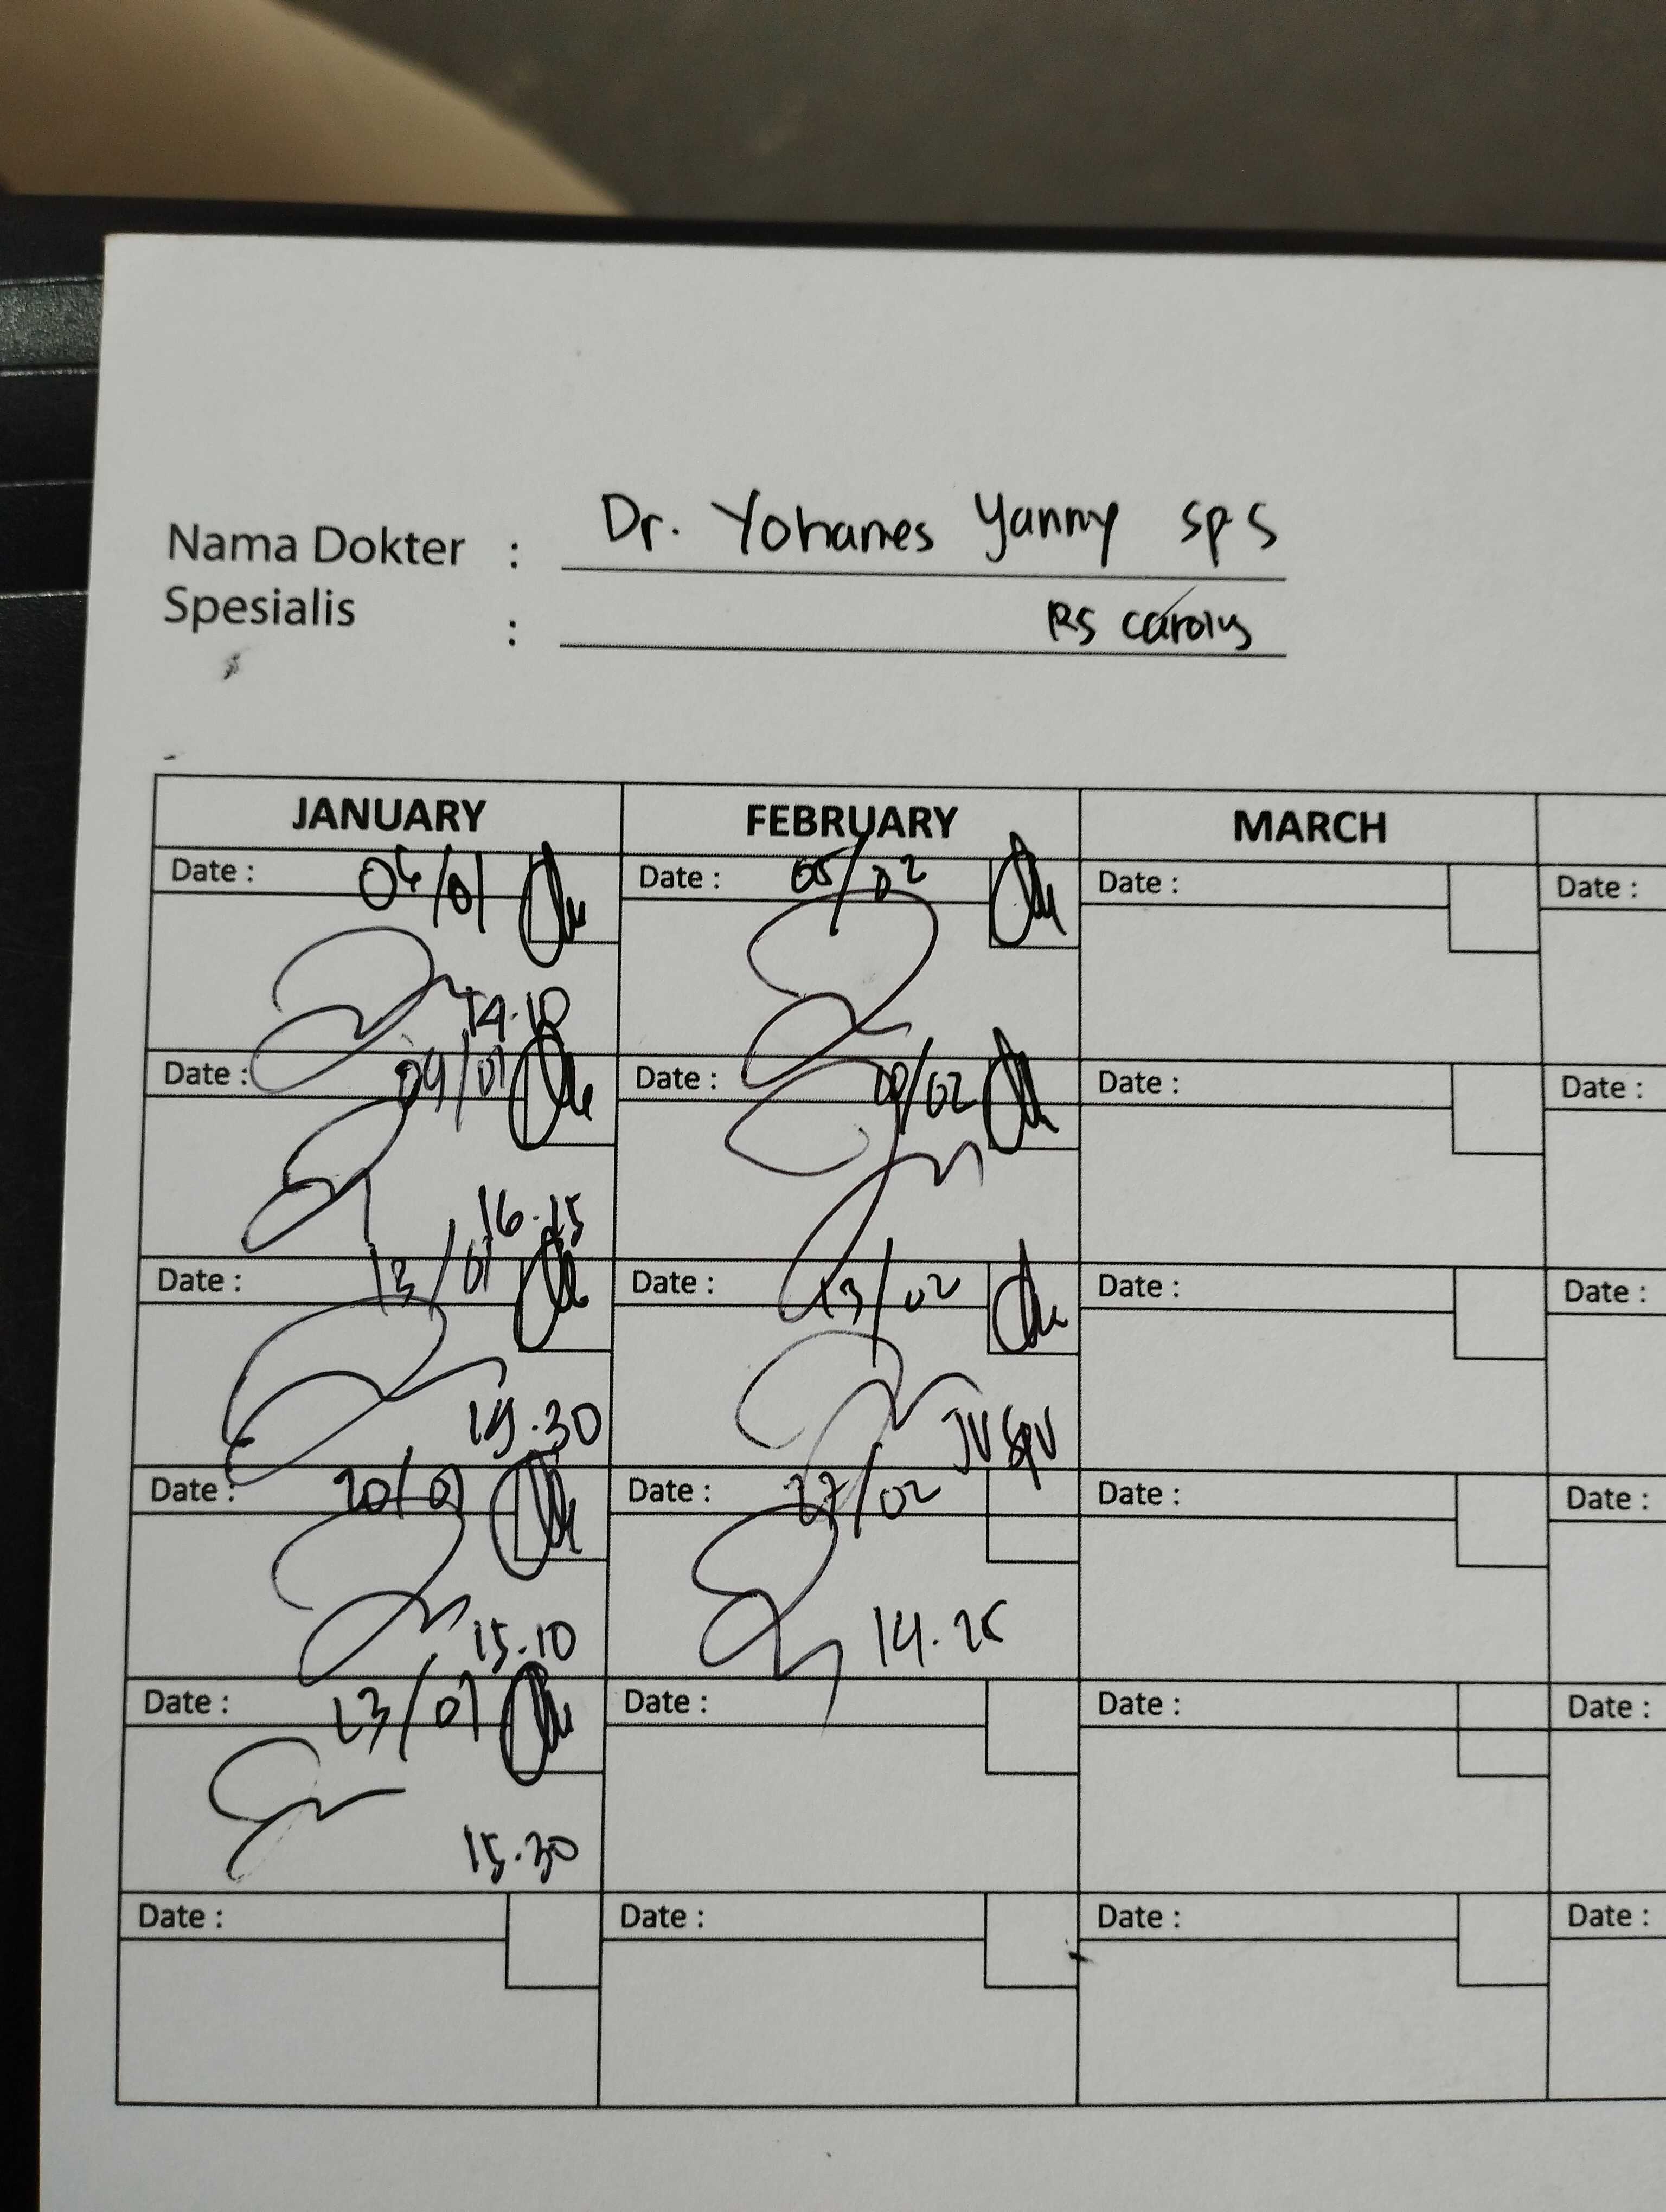 Nama Dokter : Dr. Yohanes Yanny SpS
Spesialis : RS Carolus
JANUARY FEBRUARY MARCH
Date : 06/01 Date : 05/02 Date : Date :
14.10
Date : 09/01 Date : 09/02 Date : Date :
16.15
Date : 13/01 Date : 13/02 Date : Date :
15.30 JV SPV
Date : 20/01 Date : 27/02 Date : Date :
15.10 14.25
Date : 23/01 Date : Date : Date :
15.30
Date : Date : Date : Date :